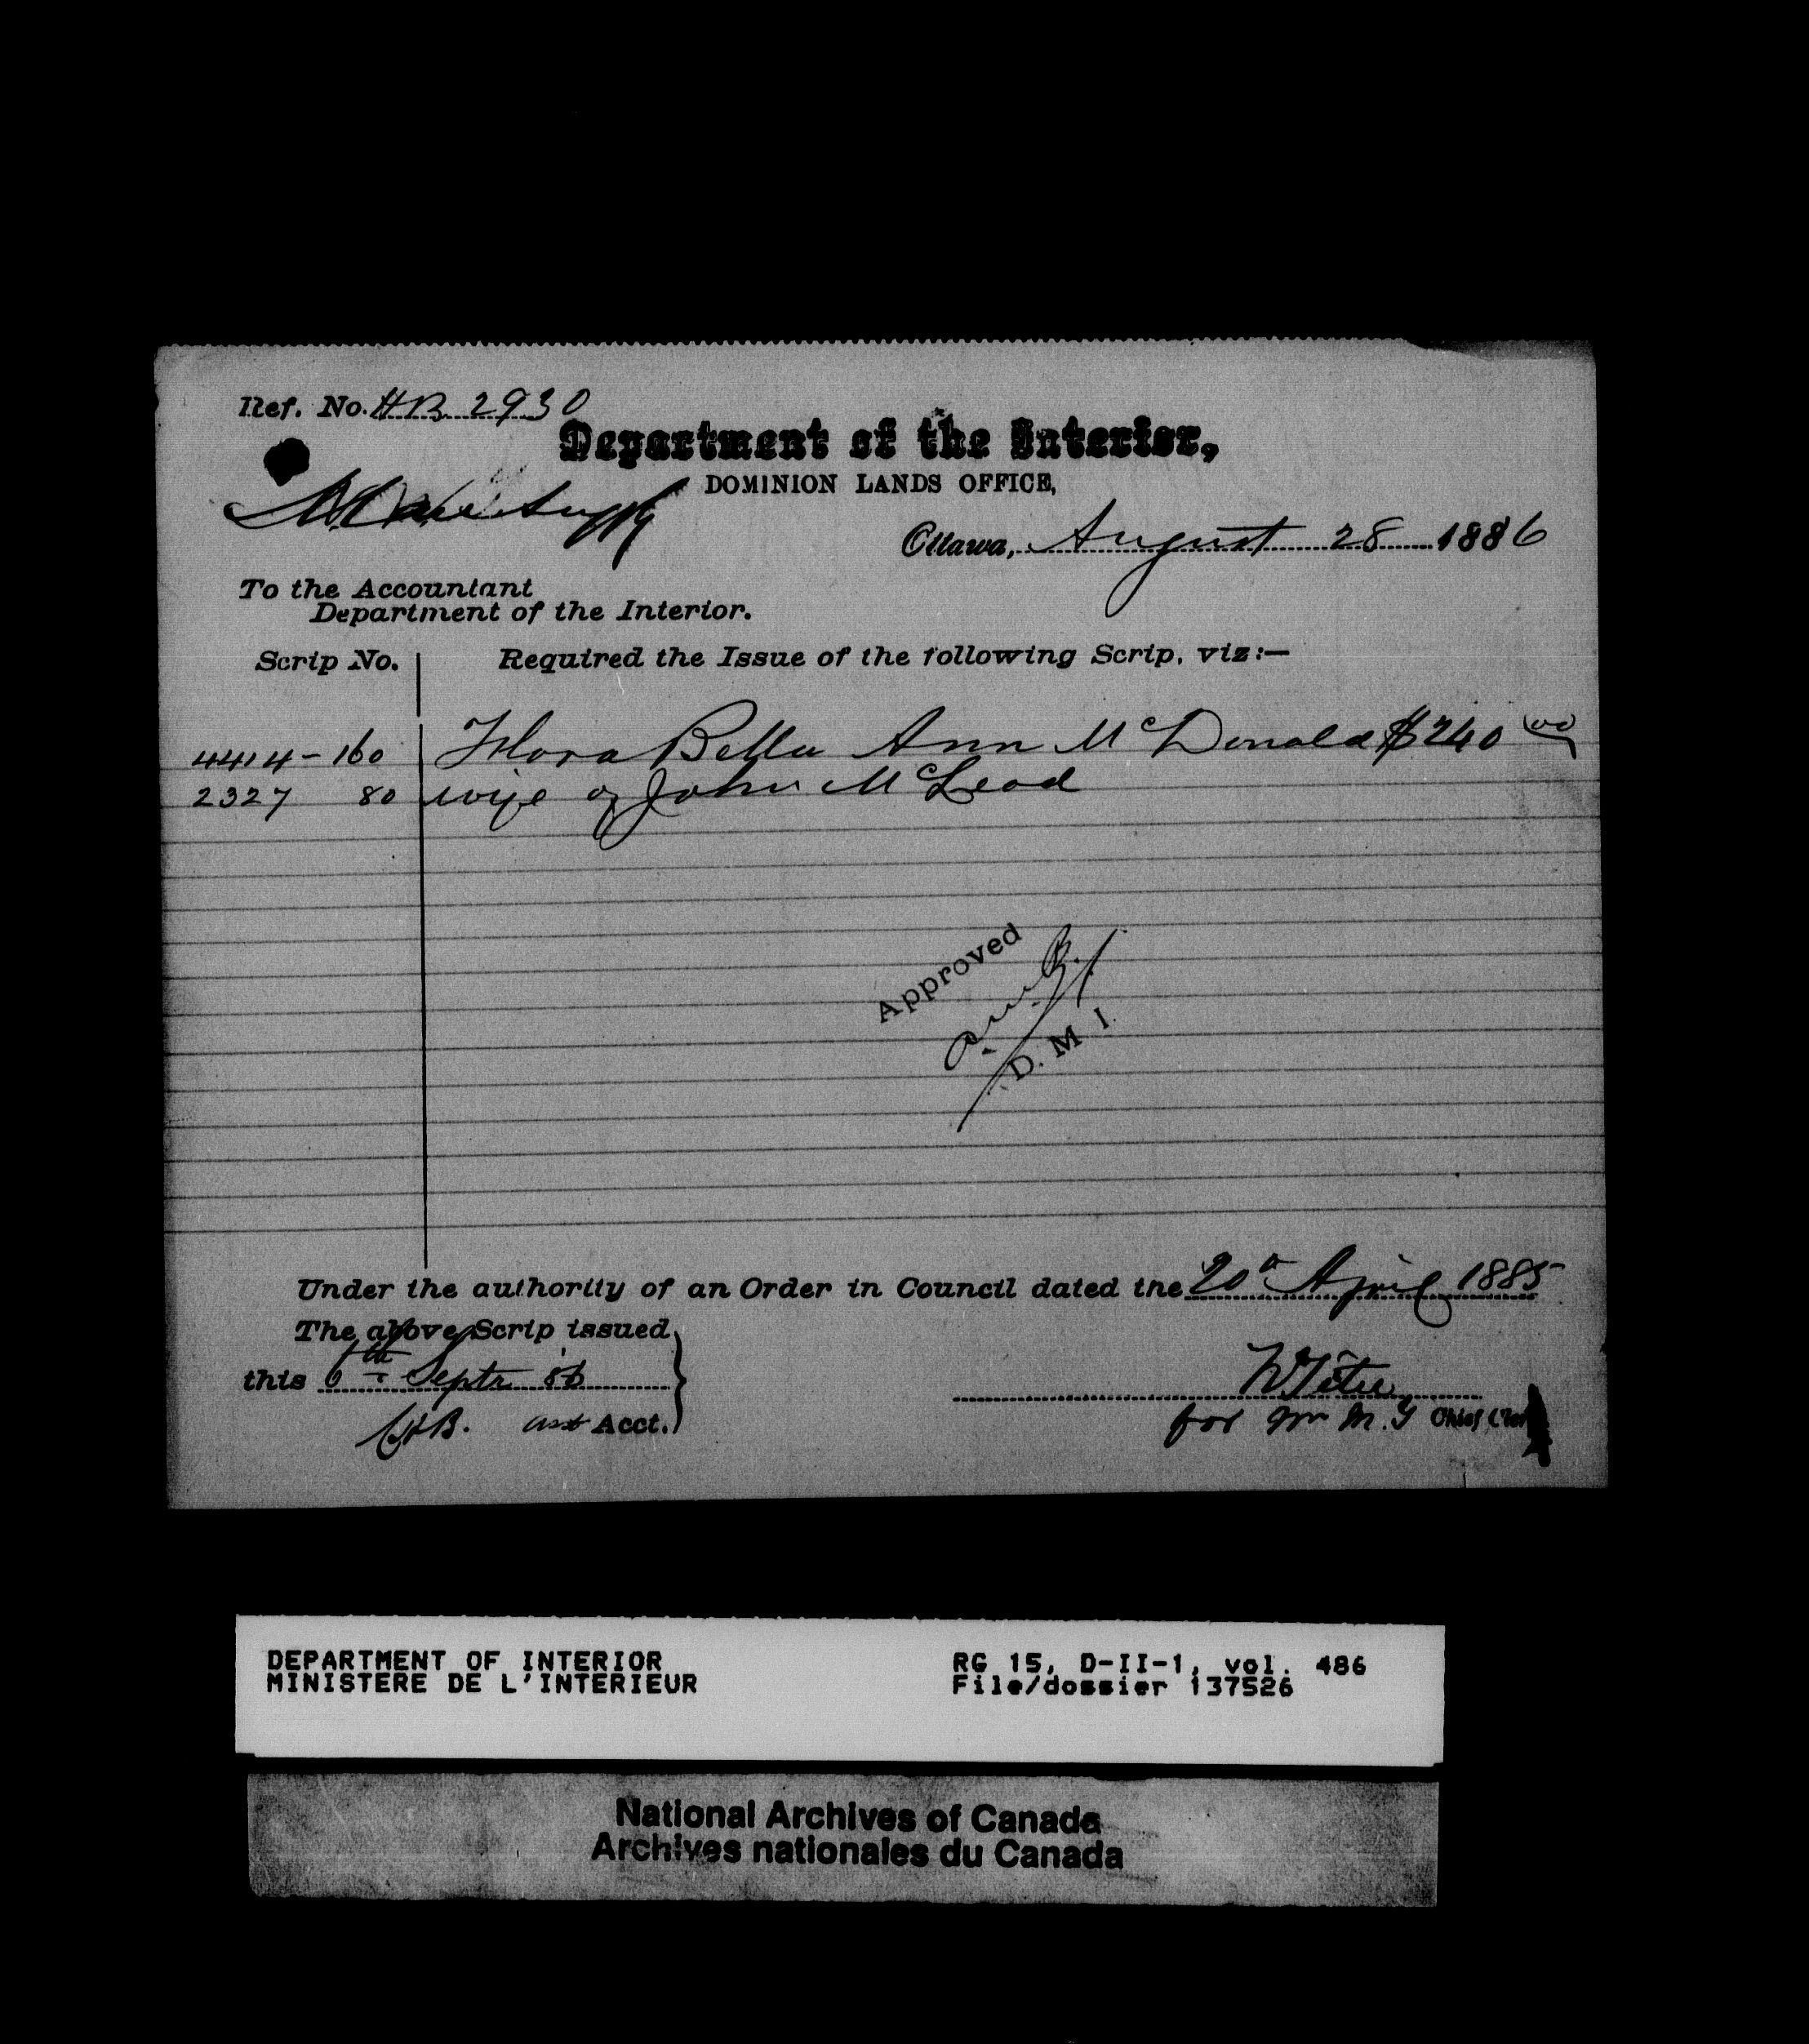 Ref. No. HB 2930
Department of the Interior,
DOMINION LANDS OFFICE,
Ottawa, August 28 1886
To the Accountant
Department of the Interior.
Scrip No. Required the Issue of the following Scrip, viz:—
4414 - 160 Flora Bella Ann McDonald $240 00
2327 80 wife of John McLeod
Approved
D. M. I.
Under the authority of an Order in Council dated the 20th April 1885
The above Scrip issued
this 6th Septr 86
asst Acct.
for Chief Clerk
DEPARTMENT OF INTERIOR RG 15, D-II-1, vol. 486
MINISTERE DE L'INTERIEUR File/dossier 137526
National Archives of Canada
Archives nationales du Canada